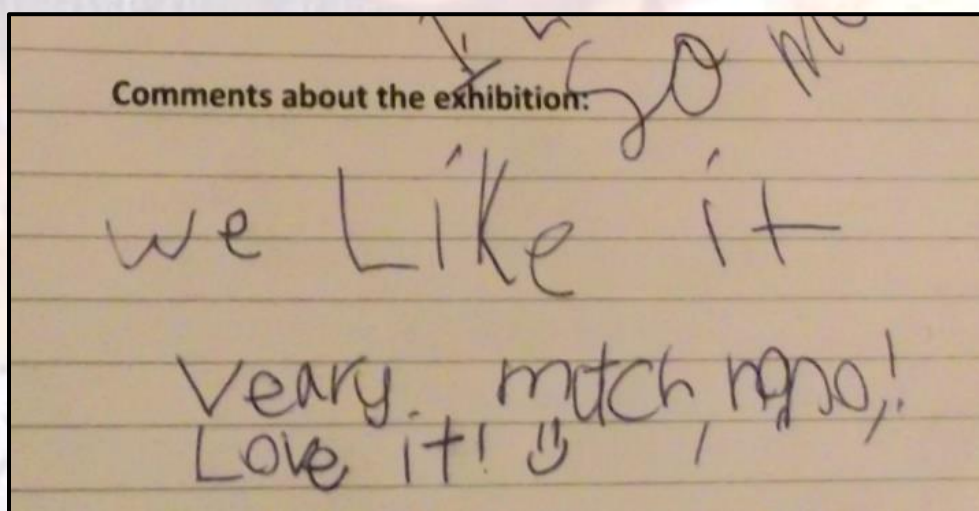 So
Comments about the exhibition:
we Like it
Veary. match
Love it!